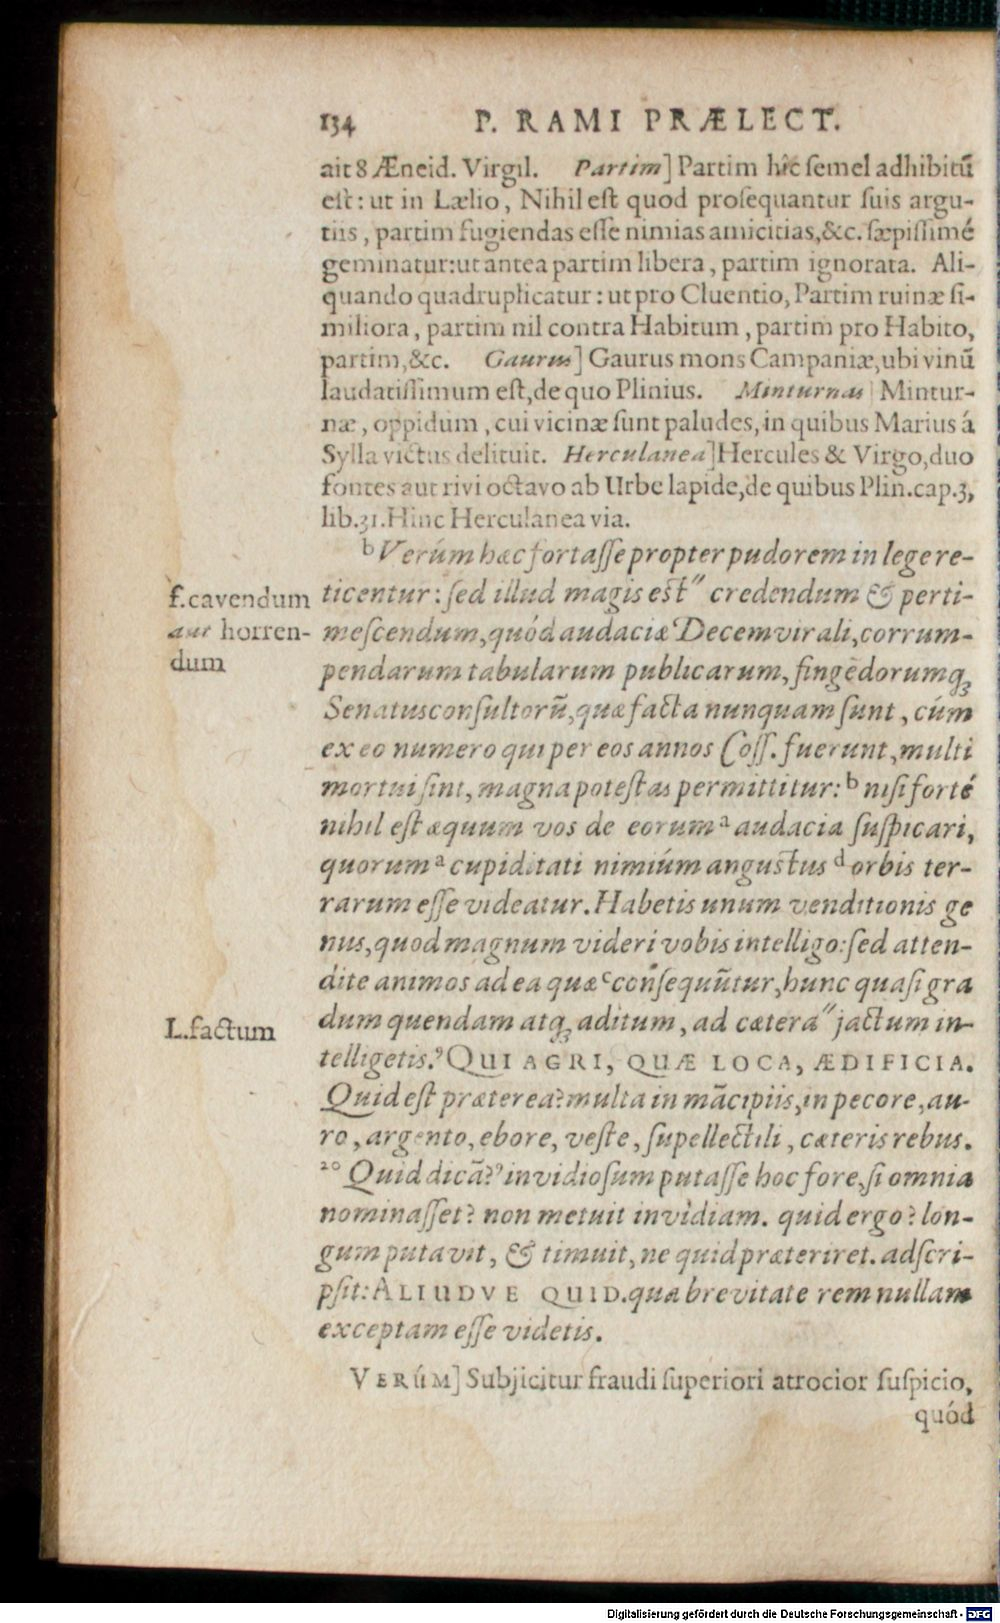 134 P. RAMI PRÆLECT.
ait 8 Æneid. Virgil. Partim] Partim hîc semel adhibitū
est: ut in Lælio, Nihil est quod prosequantur suis argu-
tiis, partim fugiendas esse nimias amicitias, &c. sæpissimé
geminatur: ut antea partim libera, partim ignorata. Ali-
quando quadruplicatur: ut pro Cluentio, Partim ruinæ si-
miliora, partim nil contra Habitum, partim pro Habito,
partim, &c. Gaurus] Gaurus mons Campaniæ, ubi vinū
laudatissimum est, de quo Plinius. Minturnas] Mintur-
næ, oppidum, cui vicinæ sunt paludes, in quibus Marius á
Sylla victus delituit. Herculanea] Hercules & Virgo, duo
fontes aut rivi octavo ab Urbe lapide, de quibus Plin. cap. 3,
lib. 31. Hinc Herculanea via.
b Verúm hæc fortasse propter pudorem in lege re-
f. cavendum
aut horren-
dum
ticentur: sed illud magis est" credendum & perti-
mescendum, quód audaciæ Decemvirali, corrum-
pendarum tabularum publicarum, fingēdorumq́ꝫ
Senatusconsultorū, quæ facta nunquam sunt, cúm
ex eo numero qui per eos annos Coss. fuerunt, multi
mortui sint, magna potestas permittitur: b nisi forté
nihil est æquum vos de eorum a audacia suspicari,
quorum a cupiditati nimiúm angustus d orbis ter-
rarum esse videatur. Habetis unum venditionis ge
nus, quod magnum videri vobis intelligo: sed atten-
dite animos ad ea quæ c consequūtur, hunc quasi gra
L. factum
dum quendam atqꝫ aditum, ad cætera" jactum in-
telligetis. 9 QUI AGRI, QUÆ LOCA, ÆDIFICIA.
Quid est præterea? multa in mācipiis, in pecore, au-
ro, argento, ebore, veste, supellectili, cæteris rebus.
20 Quid dicā? 9 invidiosum putasse hoc fore, si omnia
nominasset? non metuit invidiam. quid ergo? lon-
gum putavit, & timuit, ne quid præteriret. adscri-
psit: ALIUDVE QUID. qua brevitate rem nullam
exceptam esse videtis.
VERÚM] Subjicitur fraudi superiori atrocior suspicio,
quód
Digitalisierung gefördert durch die Deutsche Forschungsgemeinschaft - DFG